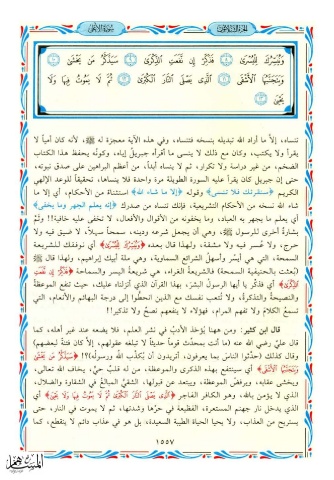 سورة الأعلى
الجزء الثلاثون
وَنُيَسِّرُكَ لِلْيُسْرَىٰ ۝ فَذَكِّرْ إِن نَّفَعَتِ الذِّكْرَىٰ ۝ سَيَذَّكَّرُ مَن يَخْشَىٰ ۝
وَيَتَجَنَّبُهَا الْأَشْقَى ۝ الَّذِي يَصْلَى النَّارَ الْكُبْرَىٰ ۝ ثُمَّ لَا يَمُوتُ فِيهَا وَلَا
يَحْيَىٰ ۝
تنساه، إلاَّ ما أراد الله تبديله بنسخه فتنساه، وفي هذه الآية معجزة له ﷺ، لأنه كان أمياً لا
يقرأ ولا يكتب، وكان مع ذلك لا ينسى ما أقرأه جبريل إياه، وكونُه يحفظ هذا الكتاب
الضخم، من غير دراسة ولا تكرار، ثم لا ينساه أبداً، من أعظم البراهين على صدق نبوته،
حتى إن جبريل كان يقرأ عليه السورة الطويلة مرة واحدة فلا ينساها، تحقيقاً للوعد الإلهي
الكريم ﴿سنقرئك فلا تنسى﴾ وقوله ﴿إلا ما شاء الله﴾ استثناءً من الأحكام، أي إلا ما
شاء الله نسخه من الأحكام التشريعية، فإنك تنساه من صدرك ﴿إنه يعلم الجهر وما يخفى﴾
أي يعلم ما يجهر به العباد، وما يخفونه من الأقوال والأفعال، لا تخفى عليه خافية!! وثمَّ
بشارةٌ أخرى للرسول ﷺ، وهي أن الله يجعل شرعه ودينه، سمحاً سهلاً، لا ضيق فيه ولا
حرج، ولا عُسر فيه ولا مشقة، ولهذا قال بعده: ﴿وَنُيَسِّرُكَ لِلْيُسْرَىٰ﴾ أي نوفقك للشريعة
السمحة، التي هي أيسر وأسهلُ الشرائع السماوية، وهي ملة أبيك إبراهيم، ولهذا قال ﷺ
(بُعثت بالحنيفية السمحة) فالشريعة الغراء، هي شريعة اليسر والسماحة ﴿فَذَكِّرْ إِن نَّفَعَتِ
الذِّكْرَىٰ﴾ أي فذكِّر يا أيها الرسولُ البشرَ، بهذا القرآن الذي أنزلناه عليك، حيث تنفع الموعظةُ
والنصيحةُ والتذكرةُ، ولا تُتعب نفسك مع الذين انحطُّوا إلى درجة البهائم والأنعام، التي
تسمعُ الكلامَ ولا تفهم المرام، فهؤلاء لا ينفعهم نصحٌ ولا تذكير!!
قال ابن كثير: ومن ههنا يُؤخذ الأدبُ في نشر العلم، فلا يضعه عند غير أهله، كما
قال عليٌ رضي الله عنه (ما أنت بمحدِّث قوماً حديثاً لا تبلغه عقولهم، إلاَّ كان فتنةً لبعضهم)
وقال كذلك (حدِّثوا الناس بما يعرفون، أتريدون أن يُكذَّب الله ورسولُه)؟! ﴿سَيَذَّكَّرُ مَن يَخْشَىٰ
وَيَتَجَنَّبُهَا الْأَشْقَى﴾ أي سينتفع بهذه الذكرى والموعظة، من له قلبٌ حيٌّ، يخاف الله تعالى،
ويخشى عقابه، ويرفضُ الموعظةَ، ويبتعد عن قبولها، الشقيُّ المبالغُ في الشقاوة والضلال،
الذي لا يؤمن بالله، وهو الكافر الفاجر ﴿الَّذِي يَصْلَى النَّارَ الْكُبْرَىٰ ثُمَّ لَا يَمُوتُ فِيهَا وَلَا يَحْيَىٰ﴾ أي
الذي يدخل نار جهنم المستعرة، الفظيعة في حرِّها وشدتها، ثم لا يموت في النار، حتى
يستريح من العذاب، ولا يحيا الحياة الطيبة السعيدة، بل هو في عذاب دائم لا ينقطع، كما
١٥٥٧